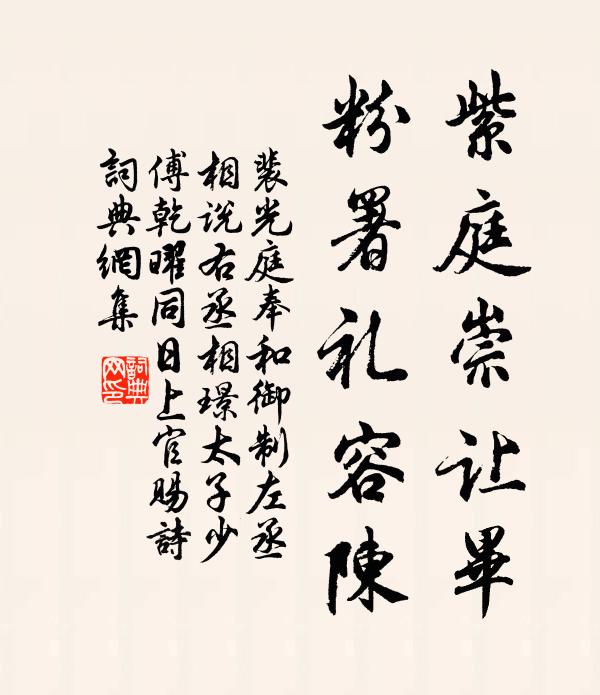 紫庭崇让畢
粉署礼容陳
裴光庭奉和御制左丞
相说右丞相璟太子少
傅乾曜同日上官赐詩
詞典網集
詞典
网印